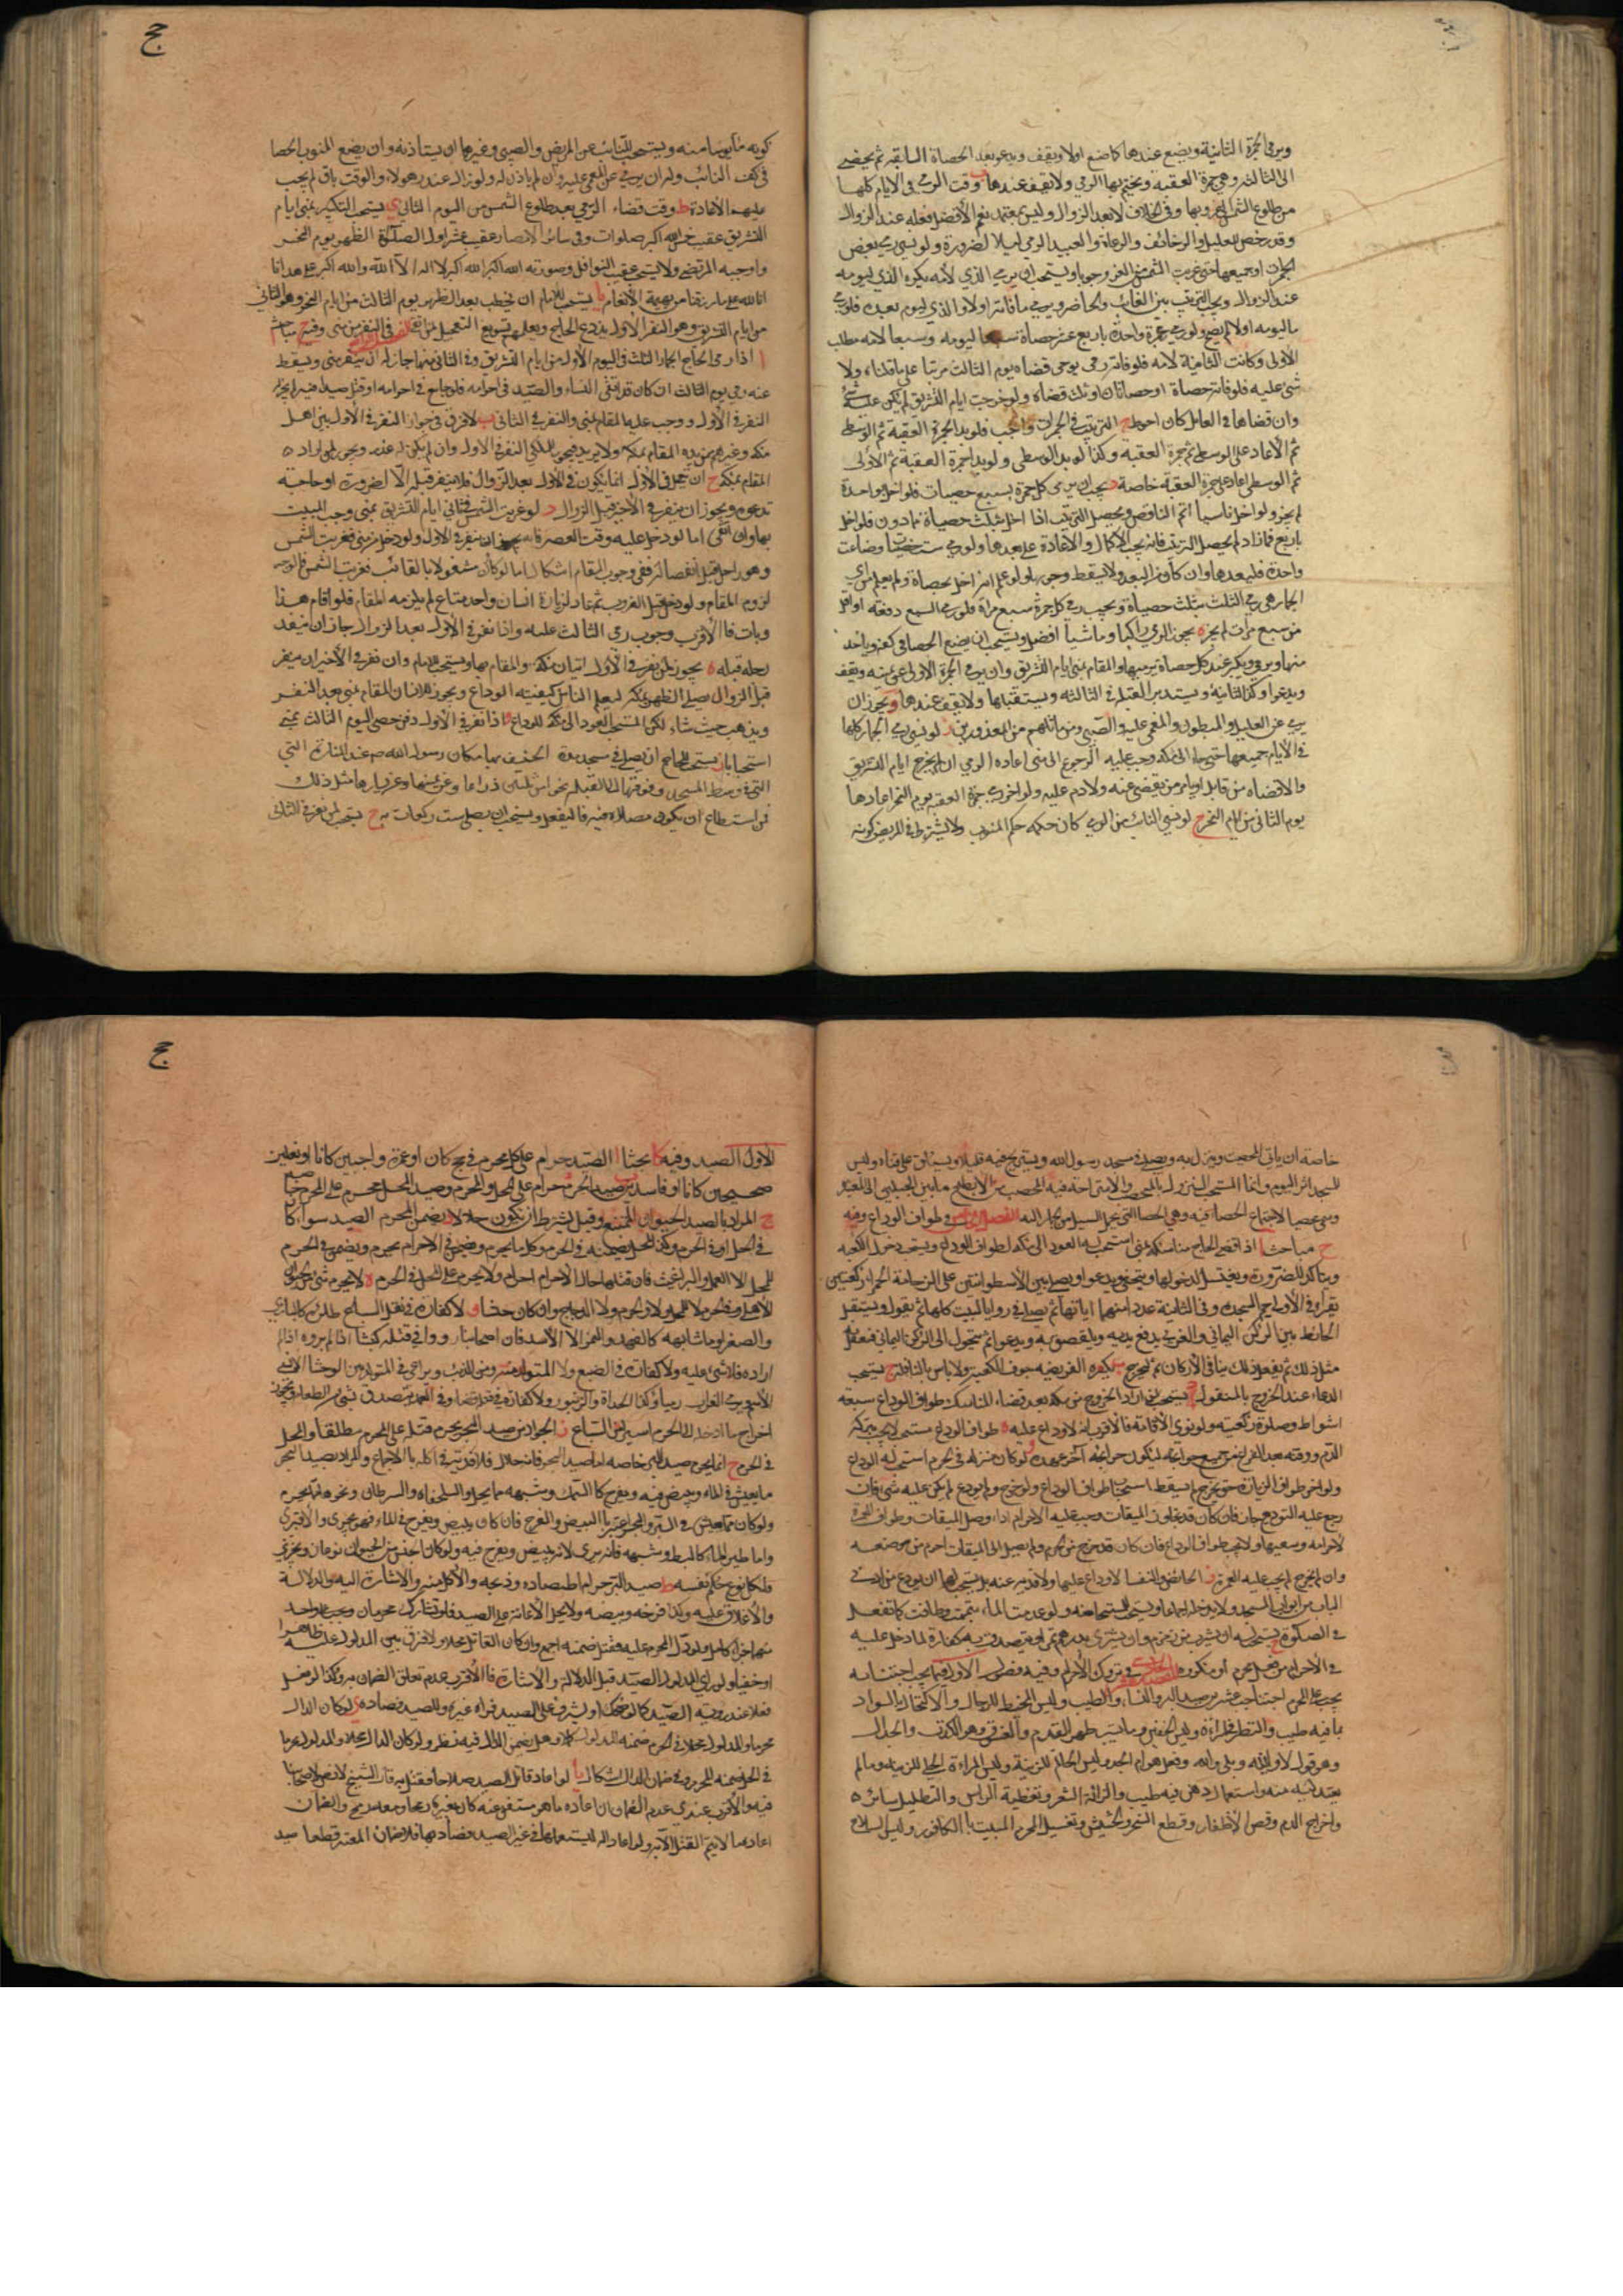 ويرمي الجمرة الثانية ويصنع عندها كما صنع اولا ويقف ويدعو بعد الحصاة السابقه ثم يمضي
الى الثالثه وهي جمرة العقبه ويختم بها الرمي ولا يقف عندها ب وقت الرمي في الايام كلها
من طلوع الشمس الى غروبها وفي الخلاف لا بعد الزوال وليس بمعتمد نعم الأفضل فعله عند الزوال
وقد رخص للعليل والخائف والرعاة والعبيد الرمي ليلا لضرورة ولو نسي رمي بعض
الجمرات او جميعها حتى غربت الشمس وجوبا ويستحب ان يرمي الذي لأمسه بكرة والذي ليومه
عند الزوال ويجب الترتيب بين الفائت والحاضر ويرمي ما فاته اولا والذي ليوم بعده فلو رمى
ما ليومه اولا لم يصح ولو رمى جمرة واحدة باربع عشر حصاة سبعا ليومه وسبعا لامسه بطلت
الأولى وكانت الثانية لأمسه فلو فاته رمي يومين قضاه يوم الثالث مرتبا على ما قلناه ولا
شئ عليه فلو فاته حصاة او حصاتان او ثلث قضاه ولو خرجت ايام التشريق لم يكن عليه شئ
وان قضاها في القابل كان احوط ج الترتيب في الجمرات واجب فلو بدا بجمرة العقبة ثم الوسطى
ثم الأولى اعاد على الوسطى ثم جمرة العقبه وكذا لو بدا بالوسطى ولو بدا بجمرة العقبة ثم الأولى
ثم الوسطى اعاد على جمرة العقبة خاصة د يجب ان يرمي كل جمرة بسبع حصيات فلو اخل بواحدة
لم يجز ولو اخل ناسيا اتم الناقص ويحصل الترتيب اذا اخل بثلث حصياة فما دون فلو اخل
باربع فما زاد لم يحصل الترتيب فانه يجب الاكمال والاعادة على ما بعدها ولو رمى ست حصيات وضاعت
واحدة فليعدها وان كان من الغد ولا يسقط وجوبها ولو علم انه اخل بحصاة ولم يعلم من اي
الجمار هي رمى الثلث بثلث حصياة ويجب رمي كل جمرة سبع مراة فلو رمى السبع دفعة او اقل
من سبع مرات لم يجزه ه يجوز الرمي راكبا وماشيا افضل ويستحب ان يضع الحصا في كفه وياخذ
منها ويرمي ويكبر عند كل حصاة يرميها والمقام بمنى ايام التشريق وان يرمي الجمرة الاولى عن يمينه ويقف
ويدعو وكذا الثانية ويستدبر القبلة في الثالثه ويستقبلها ولا يقف عندها و يجوز ان
يرمي عن العليل والمبطون والمغمى عليه والصبي ومن ماثلهم من المعذورين ز لو نسي رمي الجمار كلها
في الأيام جميعها حتى جاء الى مكه وجب عليه الرجوع الى منى اعادة الرمي ان لم يخرج ايام التشريق
والا قضاه من قابل او يامر من يقضي عنه ولا دم عليه ولو اخر رمي جمرة العقبه يوم النحر اعادها
يوم الثاني من ايام النحر ح لو نسي النائب من الرمي كان حكمه حكم المنوب ولا يشترط في المريض كونه
حج
كونه مأيوسا منه ويستحب للنائب عن المريض والصبي وغيرهما ان يستأذنه وان يضع المنوب الحصا
في كف النائب وله ان يرمي عن المغمى عليه وان لم ياذن له ولو زال عذر هولاء والوقت باق لم يجب
عليهم الاعادة ط وقت قضاء الرمي بعد طلوع الشمس من اليوم الثاني ي يستحب التكبير بمنى ايام
التشريق عقيب خمس عشر صلوات وفي سائر الأمصار عقيب عشر اولها الصلاة الظهر يوم النحر
واوجبه المرتضى ولا يستحب عقيب النوافل وصورته الله اكبر الله اكبر لا اله الا الله والله اكبر على ما هدانا
الله على ما رزقنا من بهيمة الأنعام يا يستحب للامام ان يخطب بعد الظهر يوم الثالث من ايام النحر وهو الثاني
من ايام التشريق وهو النفر الأول يودع الحاج ويعلمهم تسويغ التعجيل الفصل الرابع في النفر من منى وفيه ح مباحث
ا اذا رمى الحاج الجمار الثلث في اليوم الأول من ايام التشريق وفي الثاني منها جاز له ان ينفر من منى ويسقط
عنه رمي يوم الثالث ان كان قد اتقى النساء والصيد في احرامه فلو جامع في احرامه او قتل صيدا فيه لم يجز له
النفر في الأول ووجب عليه المقام بمنى والنفر في الثاني ب لا فرق في جواز النفر في الأول بين اهل
مكه وغيرهم من يريد المقام بمكه ولا يريد فيجوز للمكي النفر في الاول وان لم يكن له عذر ويجوز لمن اراد
المقام بمكه ج ان تعجل في الأول انما يكون في الأول بعد الزوال فلا ينفر قبله الا لضرورة او حاجة
تدعوه ويجوز ان ينفر في الأخير قبل الزوال د لو غربت الشمس في ثاني ايام التشريق بمنى وجب المبيت
بها وان اتقى اما لو دخل عليه وقت العصر فانه يجوز ان ينفر في الاول ولو دخل من منى فغربت الشمس
وهو راحل قبل انفصاله ففي وجوب المقام اشكال اما لو كان مشغولا بالتأهب فغربت الشمس فالوجه
لزوم المقام ولو رحل قبل الغروب ثم عاد لزيارة انسان واخذ متاع لم يلزمه المقام فلو اقام هذا
وبات فالأقرب وجوب رمي الثالث عليه واذا نفر في الأول بعد الزوال جاز ان ينفذ
رحله قبله ه يجوز لمن نفر في الأول اتيان مكة والمقام بها ويستحب للامام وان نفر في الأخير ان ينفر
قبل الزوال يصلي الظهر بمكه ليعلم الناس كيفيته الوداع ويجوز للانسان المقام بمنى بعد النفر
ويذهب حيث شاء لكن المستحب العود الى مكه للوداع و اذا نفر في الأول دفن حصى اليوم الثالث بمنى
استحبابا ز يستحب للحاج ان يصلي في مسجد الخيف بها مكان رسول الله ص عند المنارة التي
التي في وسط المسجد وفوقها الى القبله بنحو من ثلثين ذراعا وعن يمينها وعن يسارها مثل ذلك
فمن استطاع ان يكون مصلاه فيه فاليفعل ويستحب ان يصلي ست ركعات به ح يستحب لمن نفر في الثاني
خاصة ان ياتي المحصب وينزل به ويصلي في مسجد رسول الله ويستريح فيه قليلا ويستلقي على قفاه وليس
للمسجد اثر اليوم وانما المستحب النزول بالمحصب والاستراحة فيه
الفصل الخامس في طواف الوداع وفيه
ح مباحث ا اذا قضى الحاج مناسكه بمنى استحب له العود الى مكه لطواف الوداع ويستحب دخول الكعبه
ويتاكد للضرورة ويغتسل لدخولها ويتحفى ويدعو ويصلي بين الأسطوانتين على الرخامة الحمراء ركعتين
يقراء في الأولى حم السجده وفي الثانية عدد ايها من اياتها ثم يصلي في زوايا البيت كلها ثم يقول ويستقبل
الحائط بين الركن اليماني والغربي يدفع يديه ويلتصق به ويدعو ثم يتحول الى الركن اليماني فيفعل
مثل ذلك ثم يفعل ذلك بباقي الأركان ثم ليخرج ب يكره الفريضه جوف الكعبة ولا باس بالنافلة ج يستحب
الدعاء عند الخروج بالمنقول د يستحب لمن اراد الخروج من مكه بعد قضاء المناسك طواف الوداع سبعة
اشواط وصلوة ركعتيه ولو نوى الأقامة فالأقرب انه لا وداع عليه ه طواف الوداع مستحب لا يجب بتركه
الدم ووقته بعد الفراغ من جميع حوائجه ليكون اخر عهده و لو كان منزله في الحرم استحب له الوداع
ولو اخر طواف الزيارة حتى يخرج لم يسقط استحباب طواف الوداع ولو خرج ولم يودع لم يكن عليه شئ فان
رجع عليه التوديع جاز فان كان قد تجاوز الميقات وجب عليه الاحرام اذا وصل الميقات وطواف العمرة
لاحرامه وسعيها ولا يجب طواف الوداع فان كان قد خرج من الحرم ولم يصل الى الميقات احرم من موضعه
وان لم يخرج لم يجب عليه العمرة ز الحائض والنفسا لا وداع عليها ولا فدية عنه بل يستحب لهما ان يودع من ادنى
الباب من ابواب المسجد ولا يدخله ولو عدمت الماء تيممت وطافت كما تفعل
في الصلوة ح يستحب له ان يشرب من زمزم وان يشتري بدرهم تمرا ويتصدق به كفارة لما دخل عليه
في الأحرام من فعل محرم او مكروه المقصد الخامس في تروك الأحرام وفيه فصول الأول فيما يجب اجتنابه
يجب على المحرم اجتناب عشرين صيد البر والنساء والطيب ولبس المخيط للرجال والاكتحال بالسواد
بما فيه طيب والنظر في المراءة ولبس الخفين وما يستر ظهر القدم والفسوق وهو الكذب والجدال
وهو قول لا والله وبلى والله وقتل هوام الجسد ولبس الخاتم للزينة ولبس المراءة الحلي للزينة وما لم
يعتد لبسه منه واستعمال دهن فيه طيب وازالة الشعر وتغطية الراس والتظليل سائرا
واخراج الدم وقص الأظفار وقطع الشجر والحشيش وتغسيل المحرم الميت بالكافور ولبس السلاح
حج
الأول الصيد وفيه كا بحثا ا الصيد حرام على كل محرم في حج كان او عمرة واجبين كانا او نفلين
صحيحين كانا او فاسدين ب صيد الحرم حرام على المحل والمحرم وصيد المحل محرم على المحرم
ج المراد بالصيد الحيوان الممتنع وقيل يشترط ان يكون حلالا د يضمن المحرم الصيد سواء كان
في الحل او في الحرم وكذا المحل يضمنه في الحرم وكل ما يحرم ويضمن في الاحرام يحرم ويضمن في الحرم
للمحل الا القمل والبراغيث فان قتلها حال الاحرام حرام ولا يحرم على المحل في الحرم ه لا يحرم شئ من الحيوان
الأهلي وفي الحرم لا للمحل ولا للمحرم ولا الدجاج وان كان حبشيا و لا كفارة في قتل السباع طائره كالبازي
والصقر او ماشيه كالفهد والنمر الا الأسد فان اصحابنا رووا في قتله كبشا اذا لم يرده اما لو
اراده فلا شئ عليه ولا كفارة في الضبع ولا المتولد منه ومن الذئب ويراعى في المتولد بين الوحشي الانسي
الأسم ويرمي الغراب رميا وكذا الحداة والزنبور ولا كفارة في قتله خطاء وفي العمد يتصدق بشئ من الطعام ويجوز
اخراج ما ادخله الى الحرم اسيرا من السباع ز الجراد من صيد البر يحرم قتله على المحرم مطلقا والمحل
في الحرم ح انما يحرم صيد البر خاصه اما صيد البحر فانه حلال فلا فدية في اكله بالاجماع والمراد بصيد البحر
ما يعيش في الماء ويبيض فيه ويفرخ كالسمك وشبهه مما يحل والسلحفاه والسرطان ونحوه مما يحرم
ولو كان مما يعيش في البر والبحر اعتبر بالبيض والفرخ فان كان يبيض ويفرخ في الماء فهو بحري والا فبري
واما طير الماء كالبط وشبهه فانه بري لانه يبيض ويفرخ فيه ولو كان لجنس من الحيوان نوعان وبحري
فلكل نوع حكم نفسه ط صيد البر حرام اصطياده وذبحه والأكل منه والاشارة اليه والدلالة
والأغلاق عليه وكذا فرخه وبيضه ولا يحل الأعانة على الصيد فلو تشارك محرمان وجب على كل واحد
منهما جزاء كامل ولو دل المحرم عليه فقتل ضمنه اجمع وان كان القاتل محلا ولا فرق بين المدلول عليه ظاهرا
او خفيا ولو راى المدلول الصيد قبل الدلالة والاشارة فالأقرب عدم تعلق الضمان به وكذا لو فعل
فعلا عند رؤيه الصيد كما لو ضحك او يشرف على الصيد فراه غيره وللصيد فصاده ي لو كان الدال
محرما والمدلول محلا في الحرم ضمنه المدلول كملا وهل يضمن الدال فيه نظر ولو كان الدال محلا والمدلول محرما
في الحل ضمنه المحرم وفي ضمان الدال اشكال يا لو اعاد قاتل الصيد سلاحا فقتل به قال الشيخ لا نص لاصحابنا
فيه والأقرب عندي عدم الضمان ان اعاده ما هو مستغن عنه كان يعيره رمحا ومعه رمح والضمان
اعاده ما لا يتم القتل الا به ولو اعاد اله ليستعملها في غير الصيد فصاد بها فلا ضمان المعير قطعا